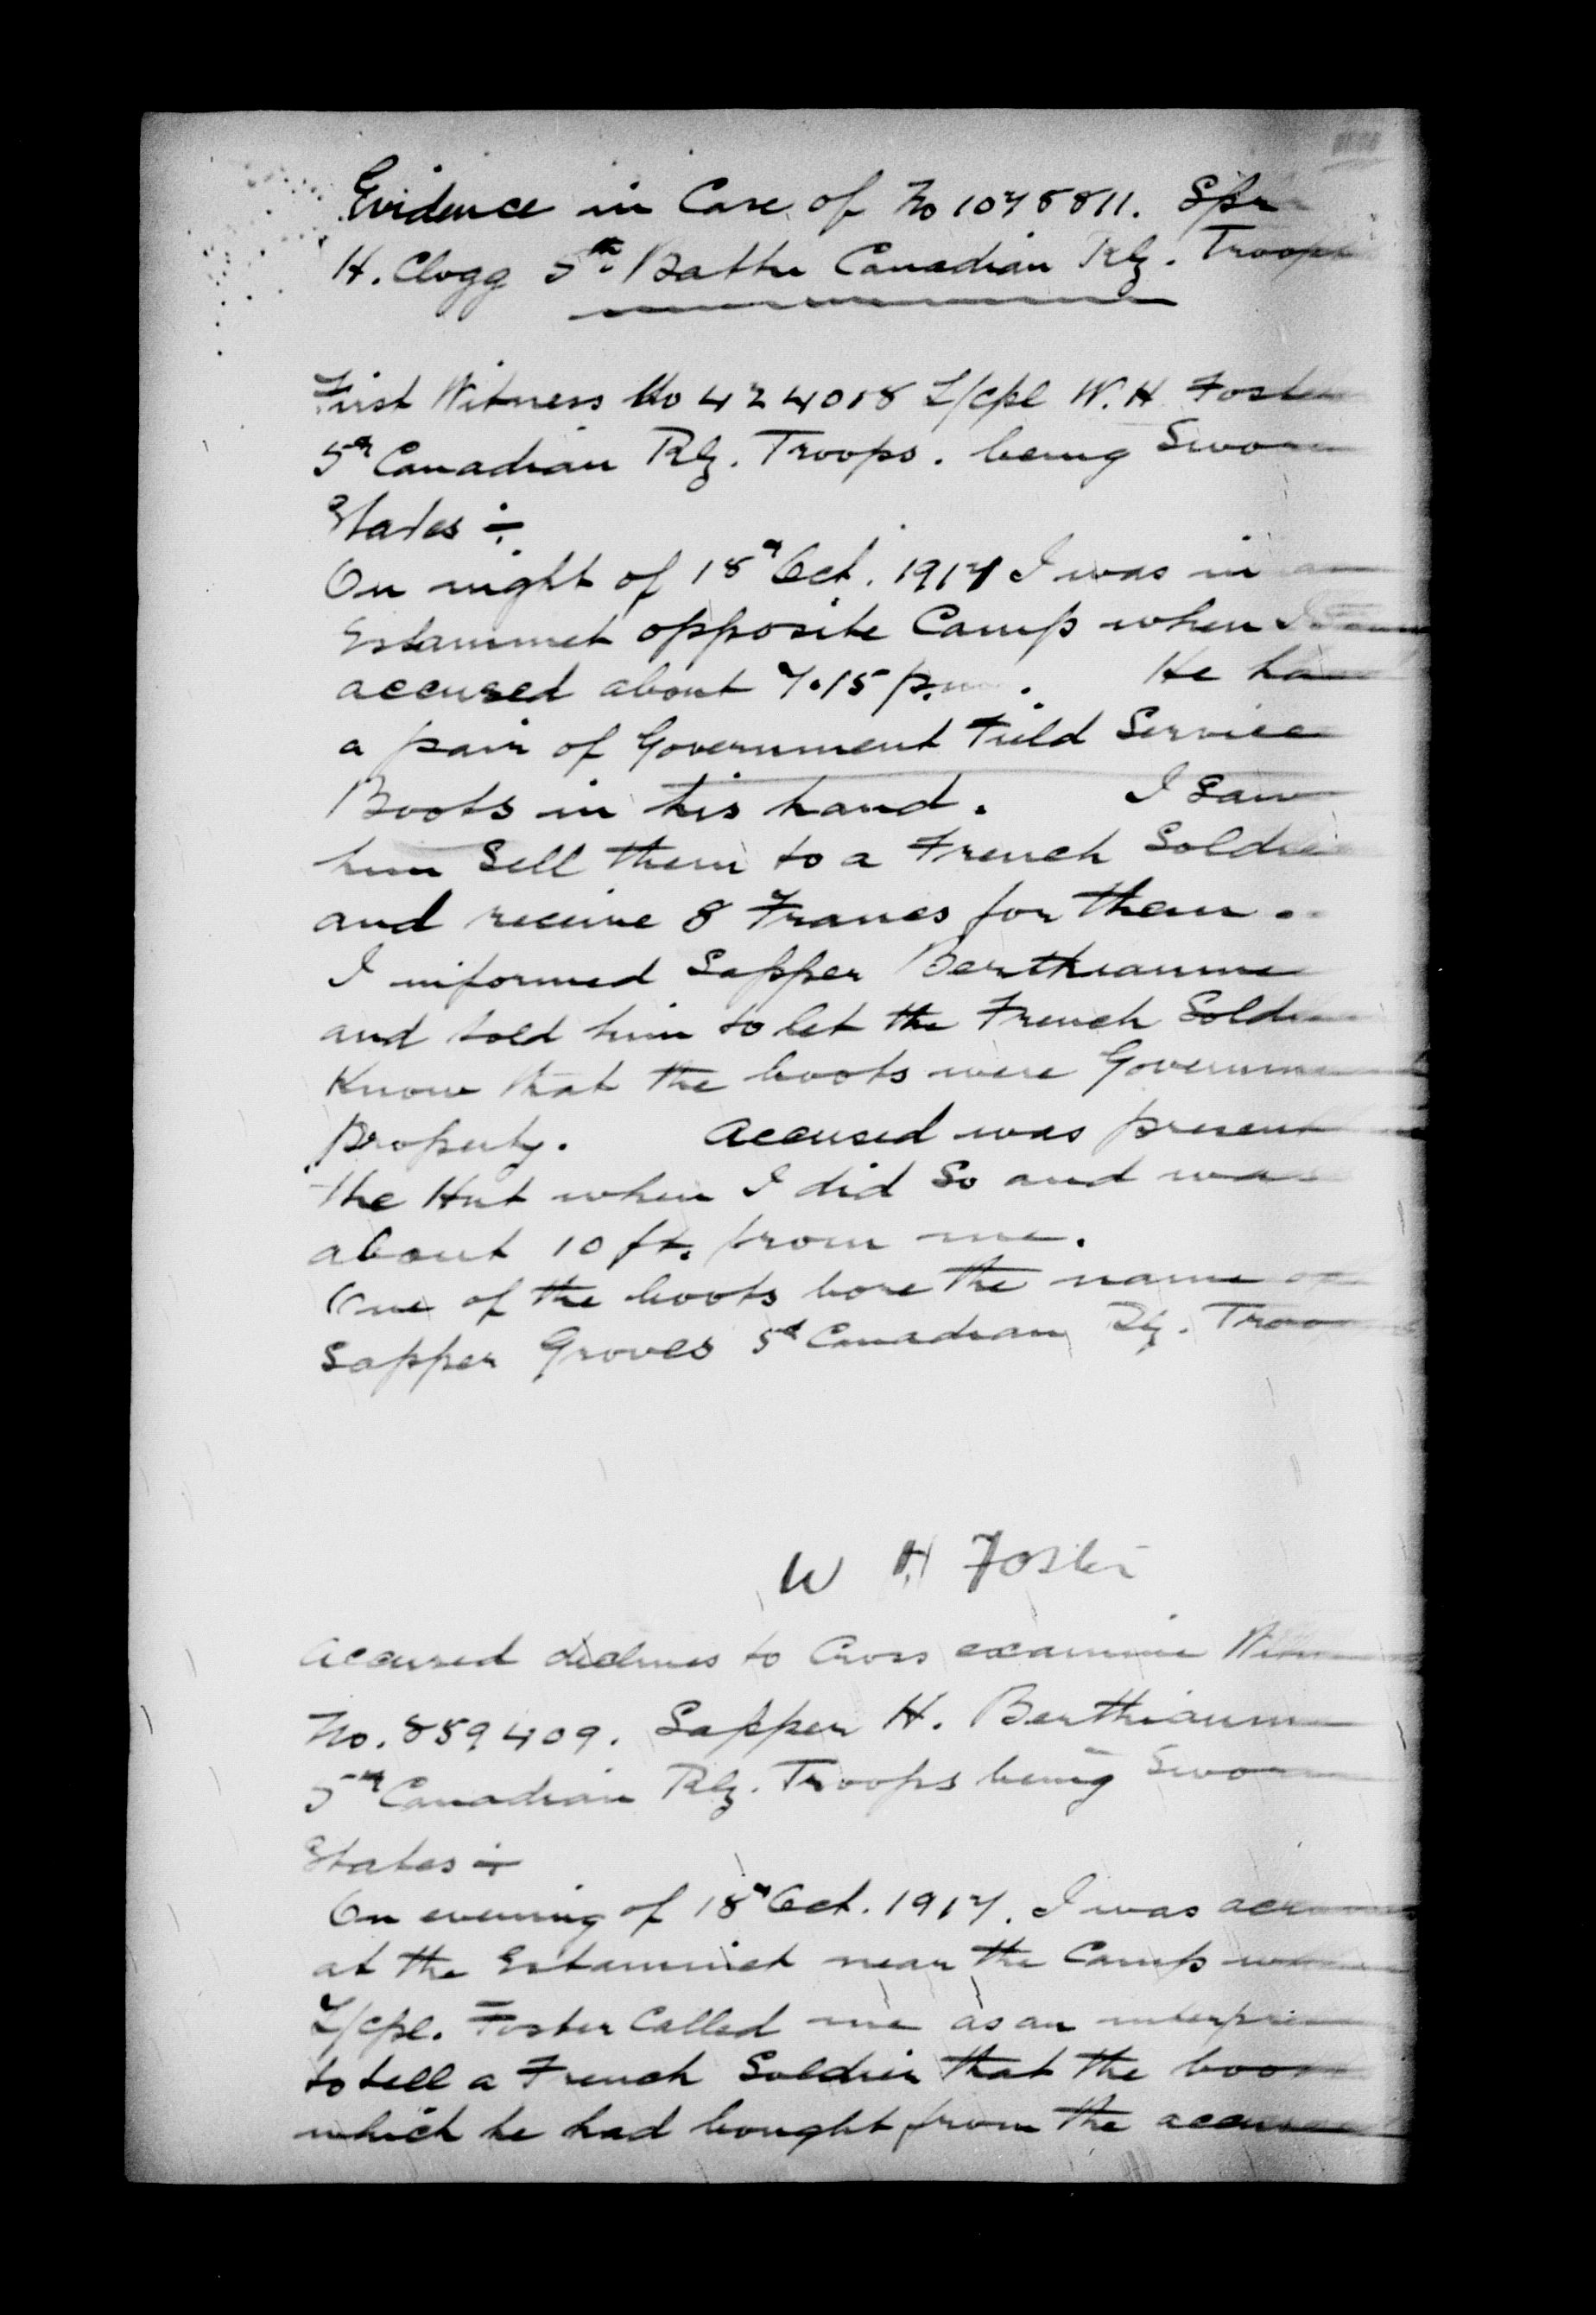 Evidence in Case of No 1078811. Spr
H. Clogg 5th Battn Canadian Rly. Troops
First Witness No 424018 L/cpl W. H Foster
5th Canadian Rly. Troops. being Sworn
States :-
On night of 18th Oct. 1917 I was in an
Estammet opposite Camp when I saw
accused about 7.15 p.m. He had
a pair of Government Field Service
Boots in his hand. I Saw
him Sell them to a French Soldier
and receive 8 Francs for them.
I informed Sapper Berthiaume
and told him to let the French Soldier
Know that the boots were Government
Property. Accused was present
the Hut when I did So and was
about 10 ft. from me.
One of the boots bore the name of
Sapper Groves 5th Canadian Rly. Troo
W H Foster
Accused declines to Cross examine Witn
No. 859409. Sapper H. Berthiaum
5th Canadian Rly. Troops being Swo
States :-
On evening of 18th Oct. 1917. I was acr
at the Estaminet near the Camp w
L/cpl. Foster Called me as an interpre
to tell a French Soldier that the boo
which he had bought from the accus